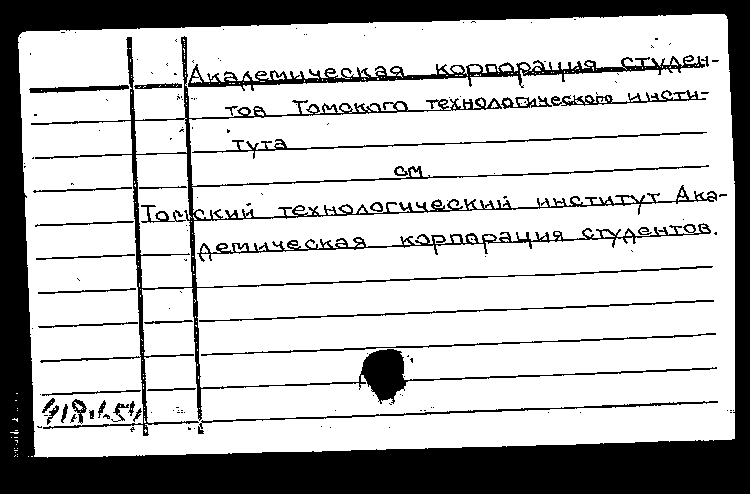 Академическая корпорация студен-
тов Томского технологического инсти-
тута
см
Томский технологический институт Ака-
демическая корпорация студентов.